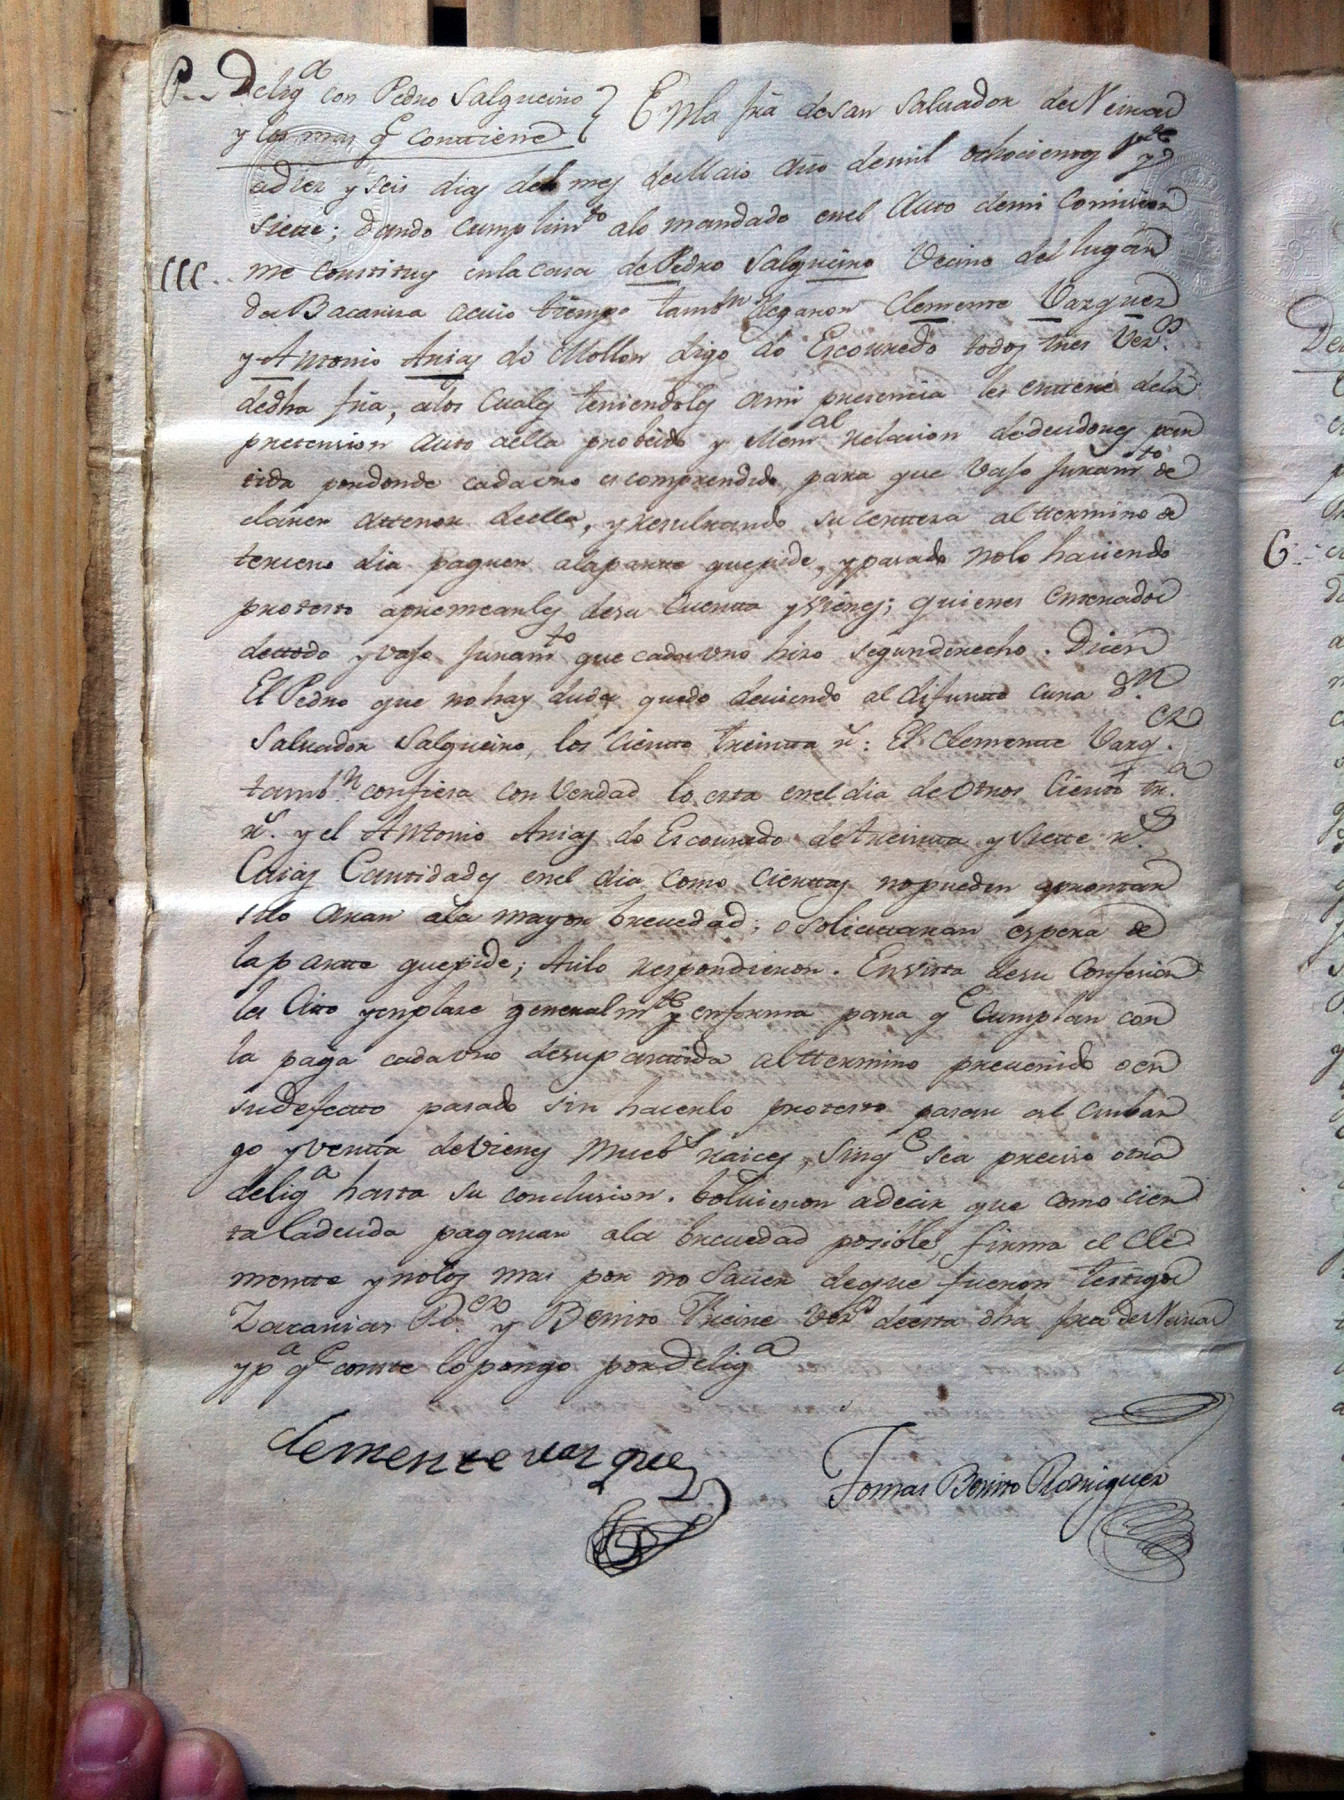 P.. Delig.a con Pedro Salgueiro
y los mas q.e contiene
En la fra de san Salvador de Neiras
adiez y seis dias del mes de Maio año de mil ochocientos y
siette; dando cumplim.to alo mandado en el Auto demi Comision
me constituy en la casa de Pedro Salgueiro Vecino del lugar
de Bacariza acuio tiempo tamb.n llegaron Clemente Vazquez
y Antonio Arias do Mollon digo do Escouredo todos tres Vez.s
dedha fra, alos Cuales teniendoles ami presencia les enteré dela
pretension auto aella probeido y Mem.al relacion dedeudores par
tida pordonde cadauno es comprendido, para que vajo Juram.to de
claren attenor deella, y resultando su certteza al ttermino de
tercero dia paguen alapartte quepide, y pasado nolo haciendo
protesto apremearles desu Cuentta y vienes; quienes enterados
dettodo y vajo Juram.to que cadauno hizo segun derecho. Dicen
El Pedro que no hay duda quedo deviendo al difuntto cura D.n
Salvador Salgueiro, los Cientto treintta r.s: El Clemente Vazq.ez
tamb.n confiesa con Verdad lo esta enel dia de Otros Cientto tr.a
r.s. y el Antonio Arias do Escouredo de treintta y Siette r.s
Cuias Cantidades enel dia como Cierttas no pueden aprontar
silo aran ala mayor brevedad; o Solicitaran espera de
la partte quepide; Asilo respondieron. En vista desu Confesion
les Cito y emplaze generalm.te y enforma para q.e Cumplan con
la paga cadauno desu parttida al ttermino prevenido o en
sudefectto pasado sin hacerlo protesto pasar al embar
go y ventta de vienes Mueb.s raices, sinq.e sea preciso otra
delig.a hasta su conclusion. bolvieron adecir que como cier
ta la deuda pagaran ala brevedad posible, firma el Cle
mentte y nolos mas por no Saver deque fueron testigos
Zacarias y Benito Freire Vez.s deesta dha fra de Neiras
y p.a q.e constte lo pongo por delig.a
Clemente vazquez
Tomas Benito Rodriguez